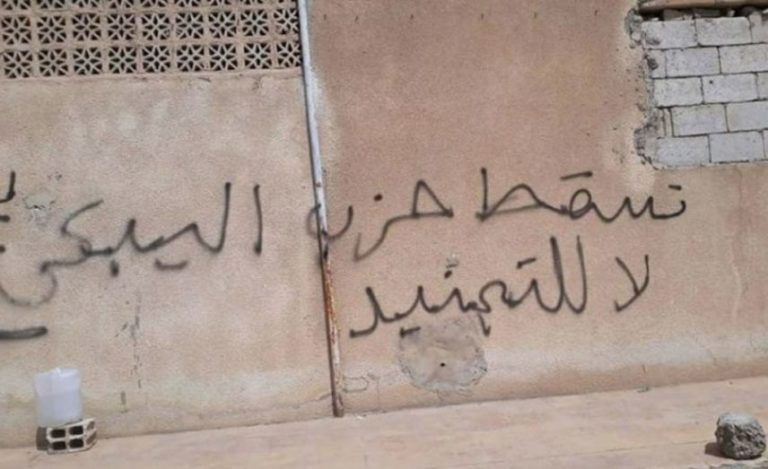 تسقط حزب اليبكي
لا للتجنيد